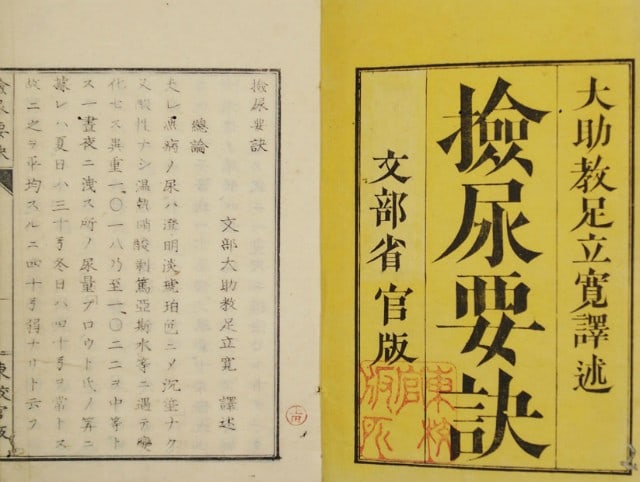 大助教足立寛譯述
撿尿要訣
文部省官版
東校
官
版所
撿尿要訣
文部大助教足立寛 譯述
總論
夫レ無病ノ尿ハ澄明淡琥珀色ニメ沉渣ナク
又酸性ナシ温熱硝酸剥篤亞斯水等ニ遇テ變
化セス異重一、〇一八乃至一、〇二二ヲ中等ト
ス一晝夜ニ洩ス所ノ尿量プロウト氏ノ算ニ
據レハ夏日ハ三十℥冬日ハ四十℥ヲ常トス
故ニ之ヲ平均スルニ四十℥得ナリト云フ
撿尿要訣
東校官版